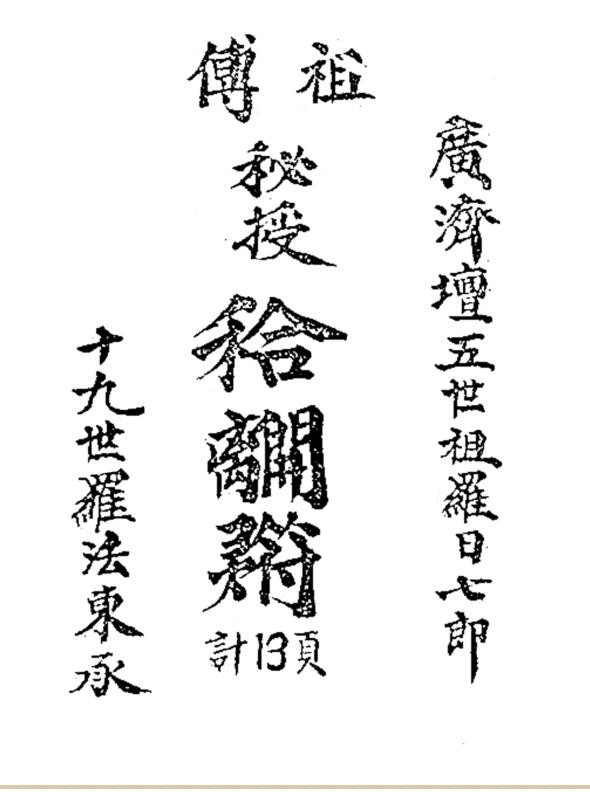 廣濟壇五世祖羅日七郎
祖傅
秘授
秴
計13頁
十九世羅法東承